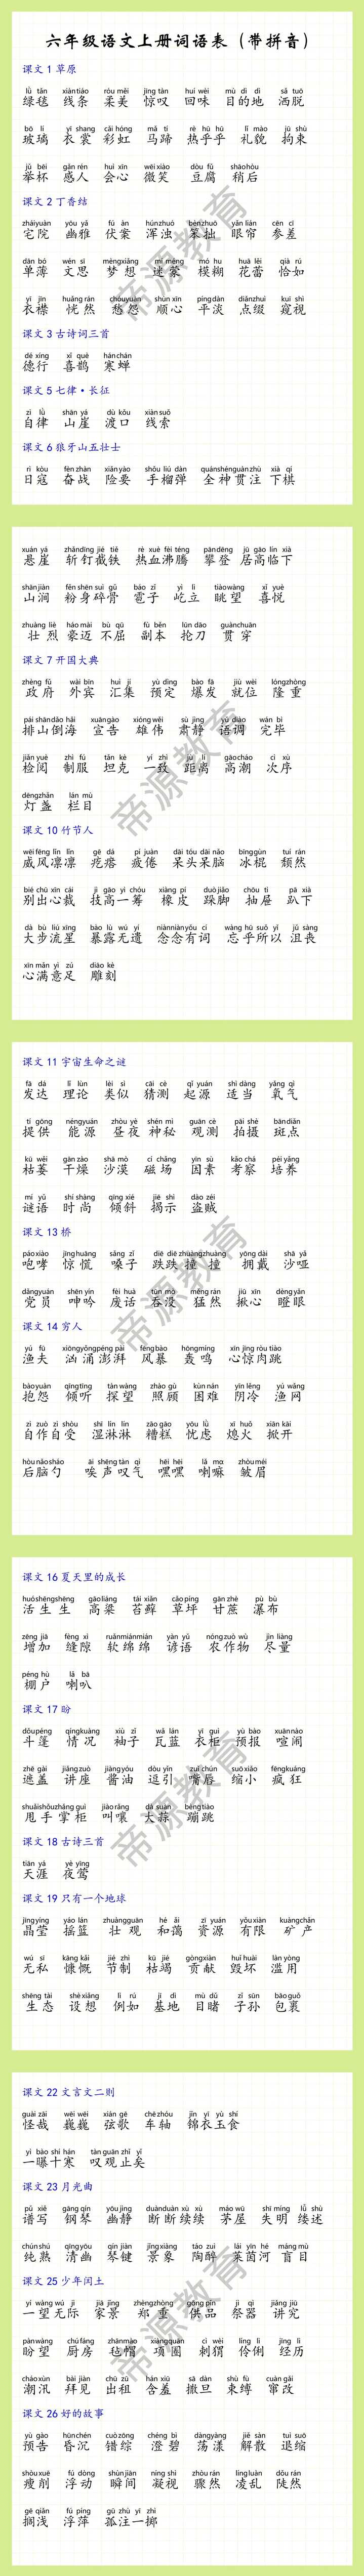 六年级语文上册词语表（带拼音）
课文 1 草原
lǜ tǎn xiàn tiáo róu měi jīng tàn huí wèi mù dì dì sǎ tuō
绿毯 线条 柔美 惊叹 回味 目的地 洒脱
bō li yī shang cǎi hóng mǎ tí rè hū hū lǐ mào jū shù
玻璃 衣裳 彩虹 马蹄 热乎乎 礼貌 拘束
jǔ bēi gǎn rén huì xīn wēi xiào dòu fǔ shāo hòu
举杯 感人 会心 微笑 豆腐 稍后
课文 2 丁香结
zhái yuàn yōu yǎ fú àn hún zhuó bèn zhuō yǎn lián cēn cī
宅院 幽雅 伏案 浑浊 笨拙 眼帘 参差
dān bó wén sī mèng xiǎng mí méng mó hu huā lěi qià rú
单薄 文思 梦想 迷蒙 模糊 花蕾 恰如
yī jīn huǎng rán chóu yuàn shùn xīn píng dàn diǎn zhuì kuī shì
衣襟 恍然 愁怨 顺心 平淡 点缀 窥视
课文 3 古诗词三首
dé xíng xǐ què hán chán
德行 喜鹊 寒蝉
课文 5 七律·长征
zì lǜ shān yá dù kǒu xiàn suǒ
自律 山崖 渡口 线索
课文 6 狼牙山五壮士
rì kòu fèn zhàn xiǎn yào shǒu liú dàn quán shén guàn zhù xià qí
日寇 奋战 险要 手榴弹 全神贯注 下棋
xuán yá zhǎn dīng jié tiě rè xuè fèi téng pān dēng jū gāo lín xià
悬崖 斩钉截铁 热血沸腾 攀登 居高临下
shān jiàn fěn shēn suì gǔ báo zǐ yì lì tiào wàng xǐ yuè
山涧 粉身碎骨 雹子 屹立 眺望 喜悦
zhuàng liè háo mài bù qū fù běn lūn dāo guàn chuān
壮烈 豪迈 不屈 副本 抡刀 贯穿
课文 7 开国大典
zhèng fǔ wài bīn huì jí yù dìng bào fā jiù wèi lóng zhòng
政府 外宾 汇集 预定 爆发 就位 隆重
pái shān dǎo hǎi xuān gào xióng wěi sù jìng yǔ diào wán bì
排山倒海 宣告 雄伟 肃静 语调 完毕
jiǎn yuè zhì fú tǎn kè yí zhì jù lí gāo cháo cì xù
检阅 制服 坦克 一致 距离 高潮 次序
dēng zhǎn lán mù
灯盏 栏目
课文 10 竹节人
wēi fēng lǐn lǐn gē da pí juàn dāi tóu dāi nǎo bīng gùn tuí rán
威风凛凛 疙瘩 疲倦 呆头呆脑 冰棍 颓然
bié chū xīn cái jì gāo yì chóu xiàng pí duò jiǎo chōu ti pā xià
别出心裁 技高一筹 橡皮 跺脚 抽屉 趴下
dà bù liú xīng bào lù wú yí niàn niàn yǒu cí wàng hū suǒ yǐ jǔ sàng
大步流星 暴露无遗 念念有词 忘乎所以 沮丧
xīn mǎn yì zú diāo kè
心满意足 雕刻
课文 11 宇宙生命之谜
fā dá lǐ lùn lèi sì cāi cè qǐ yuán shì dàng yǎng qì
发达 理论 类似 猜测 起源 适当 氧气
tí gōng néng yuán zhòu yè shén mì guān cè pāi shè bān diǎn
提供 能源 昼夜 神秘 观测 拍摄 斑点
kū wěi gān zào shā mò cí chǎng yīn sù kǎo chá péi yǎng
枯萎 干燥 沙漠 磁场 因素 考察 培养
mí yǔ shí shàng qīng xié jiē shì dào zéi
谜语 时尚 倾斜 揭示 盗贼
课文 13 桥
páo xiào jīng huāng sǎng zǐ diē diē zhuàng zhuàng yōng dài shā yǎ
咆哮 惊慌 嗓子 跌跌撞撞 拥戴 沙哑
dǎng yuán shēn yín fèi huà tūn mò měng rán jiū xīn dèng yǎn
党员 呻吟 废话 吞没 猛然 揪心 瞪眼
课文 14 穷人
yú fū xiōng yǒng péng pài fēng bào hōng míng xīn jīng ròu tiào
渔夫 汹涌澎湃 风暴 轰鸣 心惊肉跳
bào yuàn qīng tīng tàn wàng zhào gù kùn nán yīn lěng yú wǎng
抱怨 倾听 探望 照顾 困难 阴冷 渔网
zì zuò zì shòu shī lín lín zāo gāo yōu lǜ xī huǒ xiān kāi
自作自受 湿淋淋 糟糕 忧虑 熄火 掀开
hòu nǎo sháo āi shēng tàn qì hēi hēi lǎ ma zhòu méi
后脑勺 唉声叹气 嘿嘿 喇嘛 皱眉
课文 16 夏天里的成长
huó shēng shēng gāo liáng tái xiǎn cǎo píng gān zhè pù bù
活生生 高粱 苔藓 草坪 甘蔗 瀑布
zēng jiā fèng xì ruǎn mián mián yàn yǔ nóng zuò wù jǐn liàng
增加 缝隙 软绵绵 谚语 农作物 尽量
péng hù lǎ bā
棚户 喇叭
课文 17 盼
dǒu péng qíng kuàng xiù zi wǎ lán yī guì yù bào xuān nào
斗篷 情况 袖子 瓦蓝 衣柜 预报 喧闹
zhē gài jiǎng zuò jiàng yóu dòu yǐn zuǐ chún suō xiǎo fēng kuáng
遮盖 讲座 酱油 逗引 嘴唇 缩小 疯狂
shuǎi shǒu zhǎng guì jiào rǎng dà suàn bèng tiào
甩手掌柜 叫嚷 大蒜 蹦跳
课文 18 古诗三首
tiān yá yè yīng
天涯 夜莺
课文 19 只有一个地球
jīng yíng yáo lán zhuàng guān hé ǎi zī yuán yǒu xiàn kuàng chǎn
晶莹 摇篮 壮观 和蔼 资源 有限 矿产
wú sī kāng kǎi jié zhì kū jié gòng xiàn huǐ huài làn yòng
无私 慷慨 节制 枯竭 贡献 毁坏 滥用
shēng tài shè xiǎng lì rú jī dì mù dǔ zǐ sūn bāo guǒ
生态 设想 例如 基地 目睹 子孙 包裹
课文 22 文言文二则
guài zāi wēi wēi xián gē chē zhóu jǐn yī yù shí
怪哉 巍巍 弦歌 车轴 锦衣玉食
yí bào shí hán tàn guān zhǐ yǐ
一曝十寒 叹观止矣
课文 23 月光曲
pǔ xiě gāng qín yōu jìng duàn duàn xù xù máo wū shī míng lǚ shù
谱写 钢琴 幽静 断断续续 茅屋 失明 缕述
chún shú qīng yōu qín jiàn jǐng xiàng táo zuì lái yīn hé máng mù
纯熟 清幽 琴键 景象 陶醉 莱茵河 盲目
课文 25 少年闰土
yí wàng wú jì jiā jǐng zhèng zhòng gòng pǐn jì qì jiǎng jiū
一望无际 家景 郑重 供品 祭器 讲究
pàn wàng chú fáng zhān mào xiàng quān cì wei líng lì jīng lì
盼望 厨房 毡帽 项圈 刺猬 伶俐 经历
cháo xùn bài jiàn chū zū hán xiū sā dàn shù fù cuàn gǎi
潮汛 拜见 出租 含羞 撒旦 束缚 窜改
课文 26 好的故事
yù gào hūn chén cuò zōng chéng bì dàng yàng jiě sàn tuì suō
预告 昏沉 错综 澄碧 荡漾 解散 退缩
shòu xuē fú dòng shùn jiān níng shì zhòu rán líng luàn dǒu rán
瘦削 浮动 瞬间 凝视 骤然 凌乱 陡然
gē qiǎn fú píng gū zhù yí zhì
搁浅 浮萍 孤注一掷
帝源教育